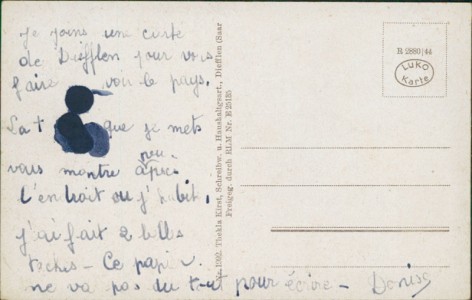 je joins une carte
de Diefflen pour vous
faire voir le pays.
La + que je mets
vous montre à peu près
l'endroit où j'habite,
j'ai fait 2 belles
taches - Ce papier
ne va pas du tout pour écrire - Denise
Nr. 1302. Thekla Kirst, Schreibw. u. Haushaltgsart., Diefflen (Saar
Freigeg. durch RLM Nr. E 25135
R 2880|44
LUKO
Karte